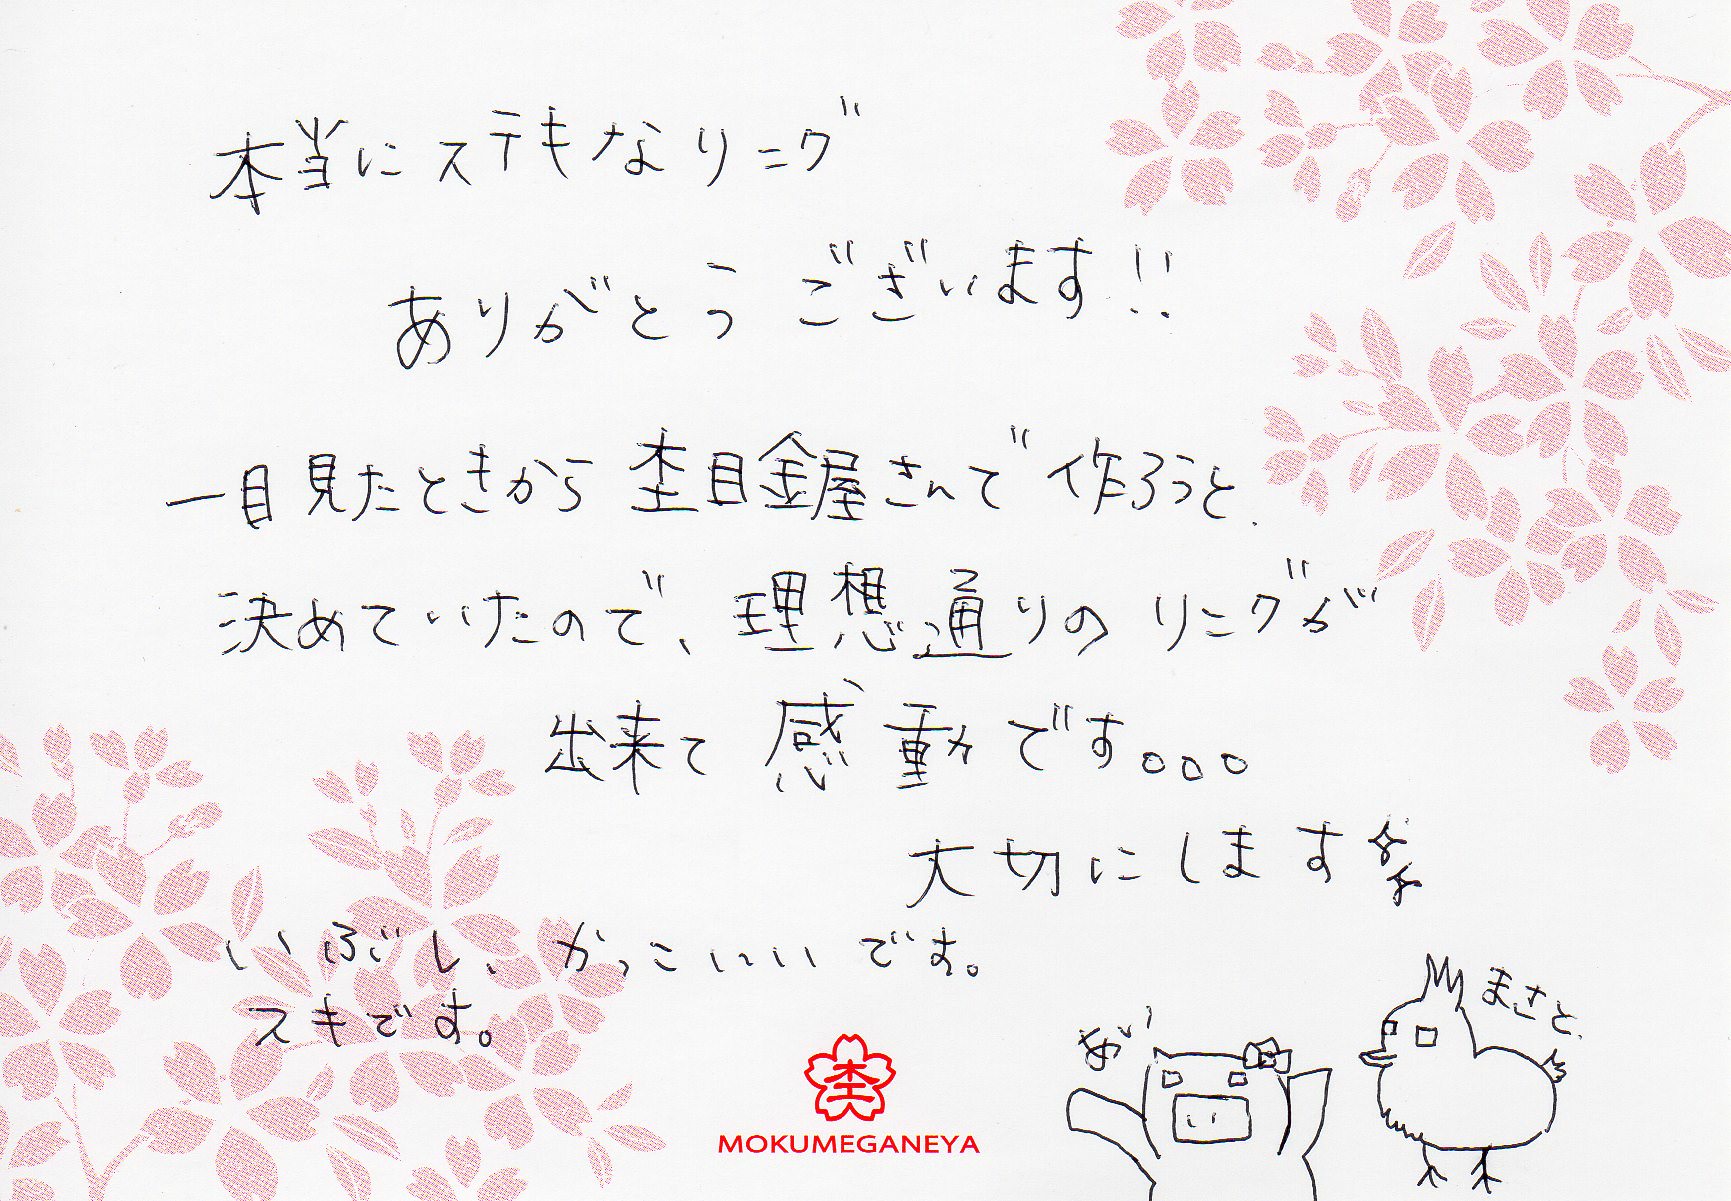 本当にステキなリング
ありがとう ございます!!
一目見たときから 杢目金屋さんで 作ろうと
決めていたので、理想通りの リングが
出来て 感動です。。。
大切にします
いぶし、かっこいいです。
スキです。
まさと
あい
杢
MOKUMEGANEYA